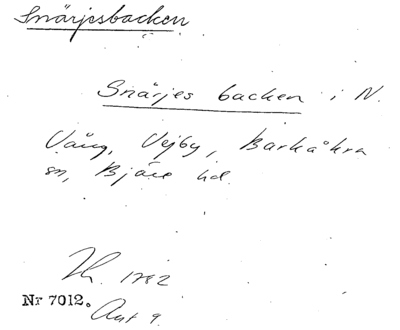 Snärjesbacken
Snärjes backen i N.
Vång, Vejby, Barkåkra
sn, Bjäre hd.
1782
Nr 7012.
Akt 9.